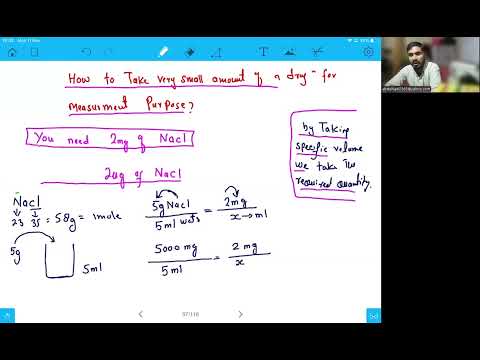 How to Take very small amount of a dry for
measurment Purpose?
You need 2mg of Nacl
2ug of Nacl
by Taking
specific volume
we take the
required quantity.
Nacl
23 35 = 58g = 1mole
5g
5ml
5g Nacl = 2mg
5ml water x → ml
5000 mg = 2 mg
5 ml x
97/116